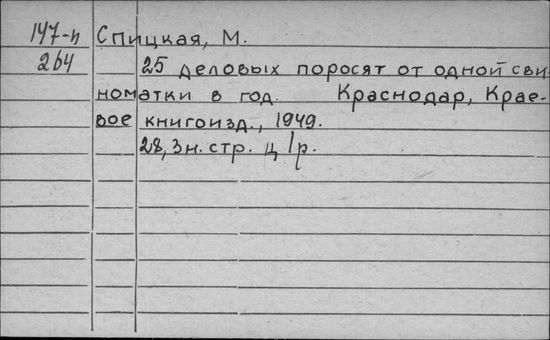 147-н Спицкая, М.
264
25 деловых поросят от одной сви
номатки в год. Краснодар, Крае-
вое книгоизд., 1949.
28, 3н. стр. ц 1р.